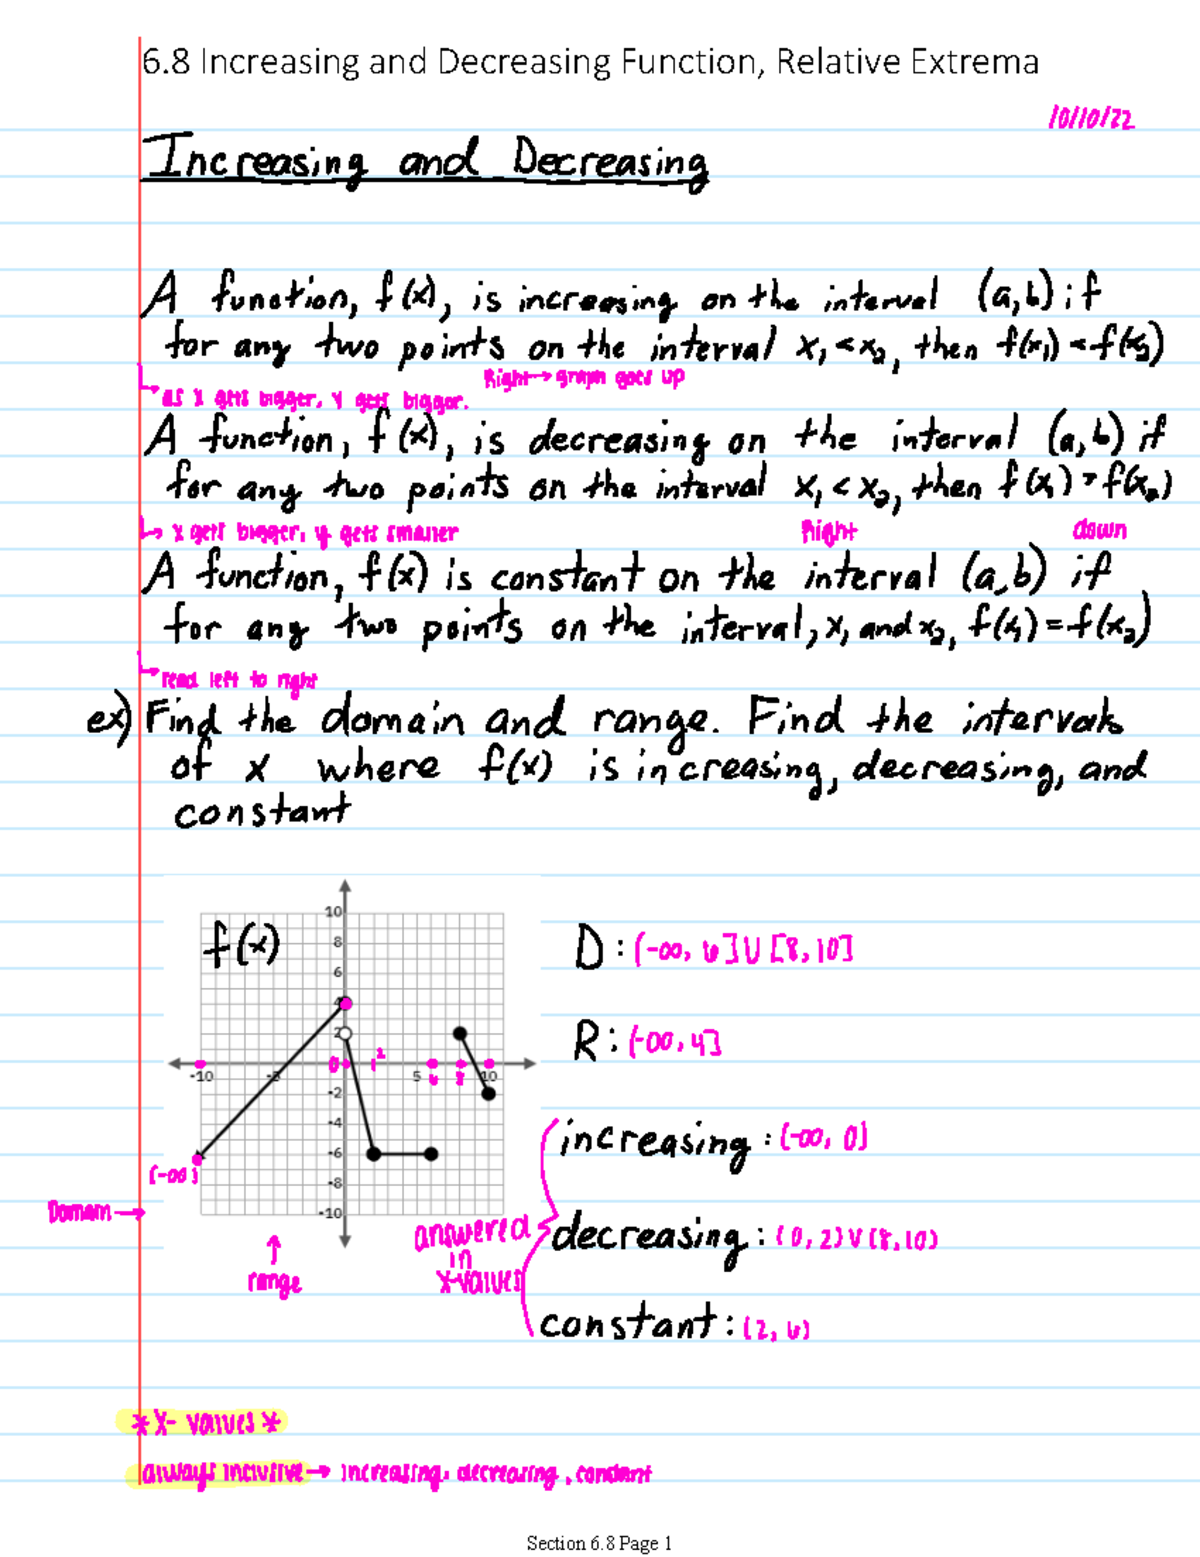 6.8 Increasing and Decreasing Function, Relative Extrema
10/10/22
Increasing and Decreasing
A function, f(x), is increasing on the interval (a,b) if
for any two points on the interval x₁<x₂, then f(x₁)<f(x₂)
Right→graph goes up
↳as x gets bigger, y gets bigger.
A function, f(x), is decreasing on the interval (a,b) if
for any two points on the interval x₁<x₂, then f(x₁)>f(x₂)
↳ x gets bigger, y gets smaller Right down
A function, f(x) is constant on the interval (a,b) if
for any two points on the interval, x₁ and x₂, f(x₁)=f(x₂)
↳read left to right
ex) Find the domain and range. Find the intervals
of x where f(x) is increasing, decreasing, and
constant
f(x)
10
8
6
4
2
0 1 2
-10 -5 5 6 8 10
-2
-4
-6
-8
-10
(-∞)
Domain→
↑
range
D: (-∞, 6]∪[8,10]
R: (-∞,4]
increasing: (-∞, 0)
answered
in
x-values
decreasing: (0,2)∪(8,10)
constant: (2,6)
*X-values*
always inclusive→ increasing, decreasing, constant
Section 6.8 Page 1